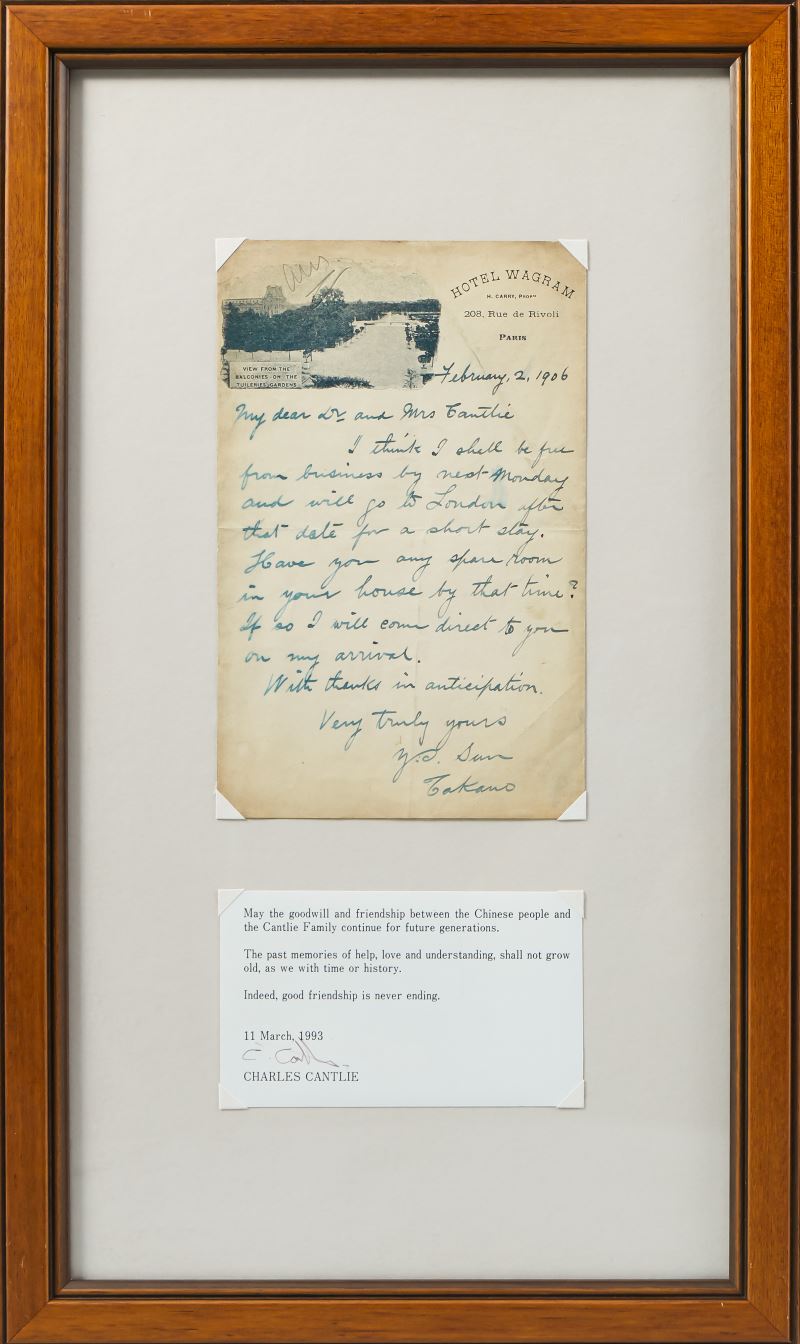 Ans
HOTEL WAGRAM
H. CARRY, Propr
208, Rue de Rivoli
PARIS
VIEW FROM THE
BALCONIES ON THE
TUILERIES GARDENS
February, 2, 1906
My dear Dr. and Mrs Cantlie
I think I shall be free
from business by next Monday
and will go to London after
that date for a short stay.
Have you any spare room
in your house by that time?
If so I will come direct to you
on my arrival.
With thanks in anticipation.
Very truly yours
Y.S. Sun
Takano
May the goodwill and friendship between the Chinese people and
the Cantlie Family continue for future generations.
The past memories of help, love and understanding, shall not grow
old, as we with time or history.
Indeed, good friendship is never ending.
11 March, 1993
C. Cantlie
CHARLES CANTLIE